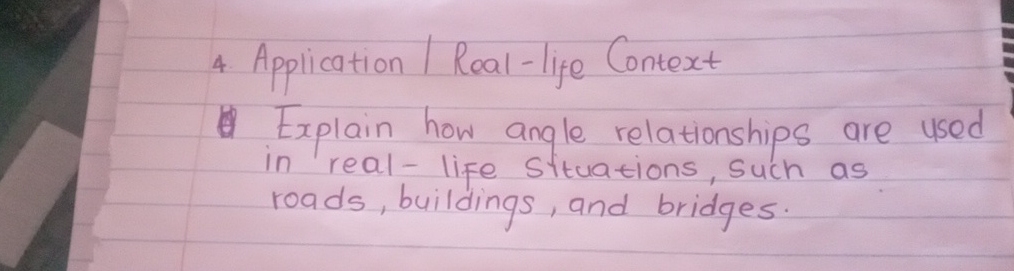 4. Application / Real-life Context
Explain how angle relationships are used
in real-life situations, such as
roads, buildings, and bridges.